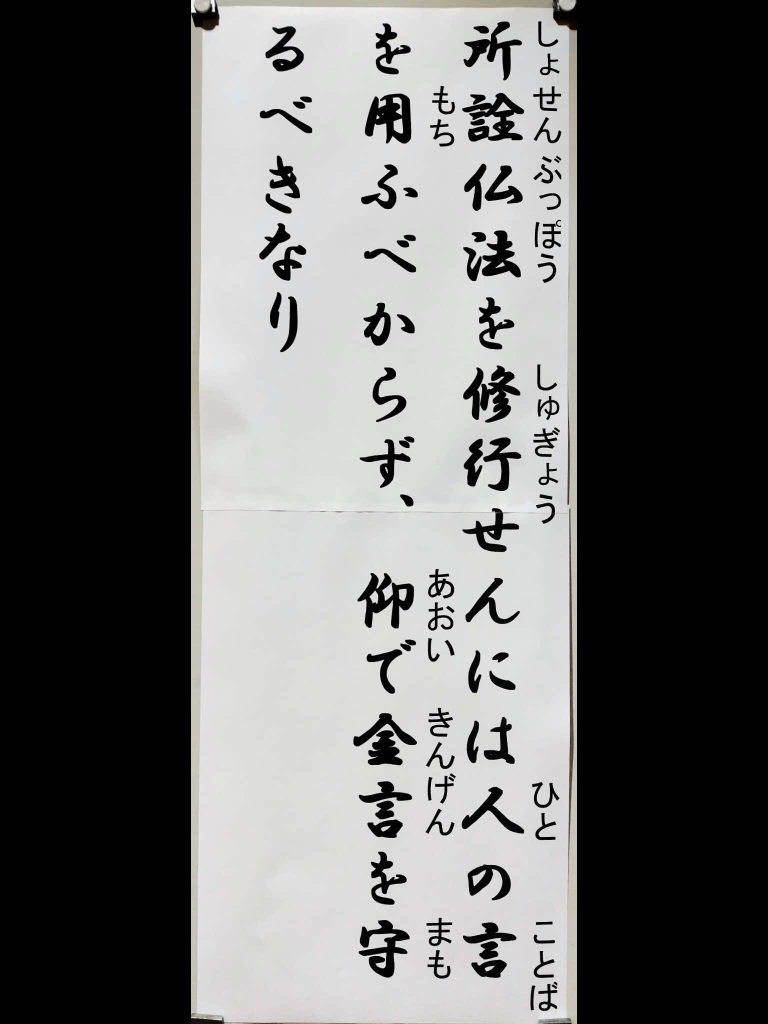 しょせんぶっぽう しゅぎょう ひと ことば
所詮仏法を修行せんには人の言
もち あおい きんげん まも
を用ふべからず、仰で金言を守
るべきなり